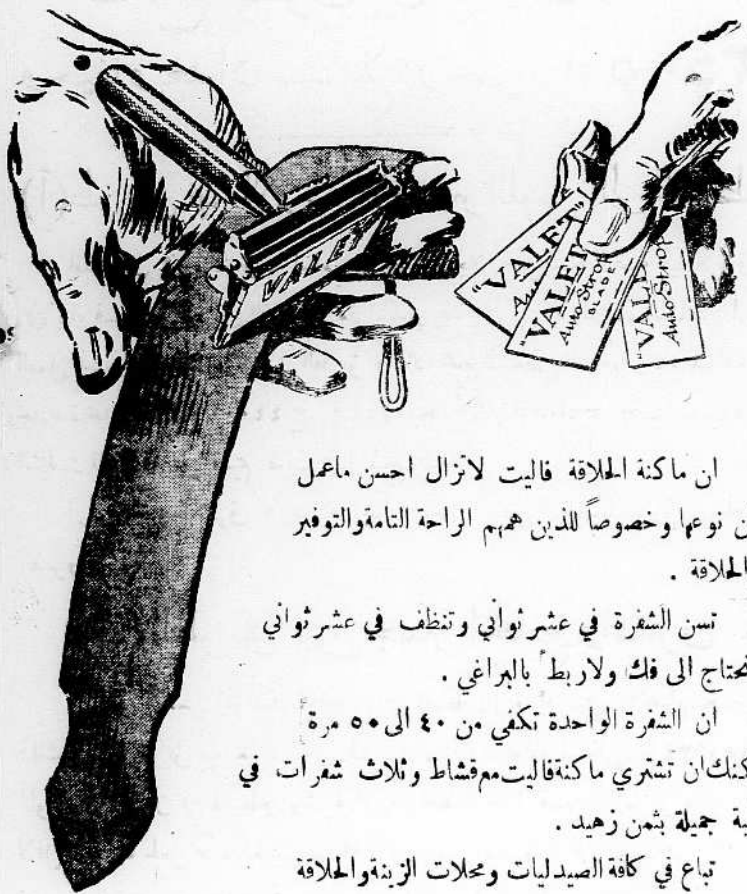 VALET
"VALET"
Auto Strop
"VALET"
Auto Strop
BLADE
"VAL
Auto Strop
ان ماكنة الحلاقة ڤاليت لاتزال احسن ماعمل
ن نوعها وخصوصاً للذين همهم الراحة التامة والتوفير
الحلاقة .
تسن الشفرة في عشر ثواني وتنظف في عشر ثواني
تحتاج الى فك ولاربط بالبراغي .
ان الشفرة الواحدة تكفي من ٤٠ الى ٥٠ مرة
كنك ان تشتري ماكنة ڤاليت مع قشاط وثلاث شفرات في
بة جميلة بثمن زهيد .
تباع في كافة الصيدليات ومحلات الزينة والحلاقة